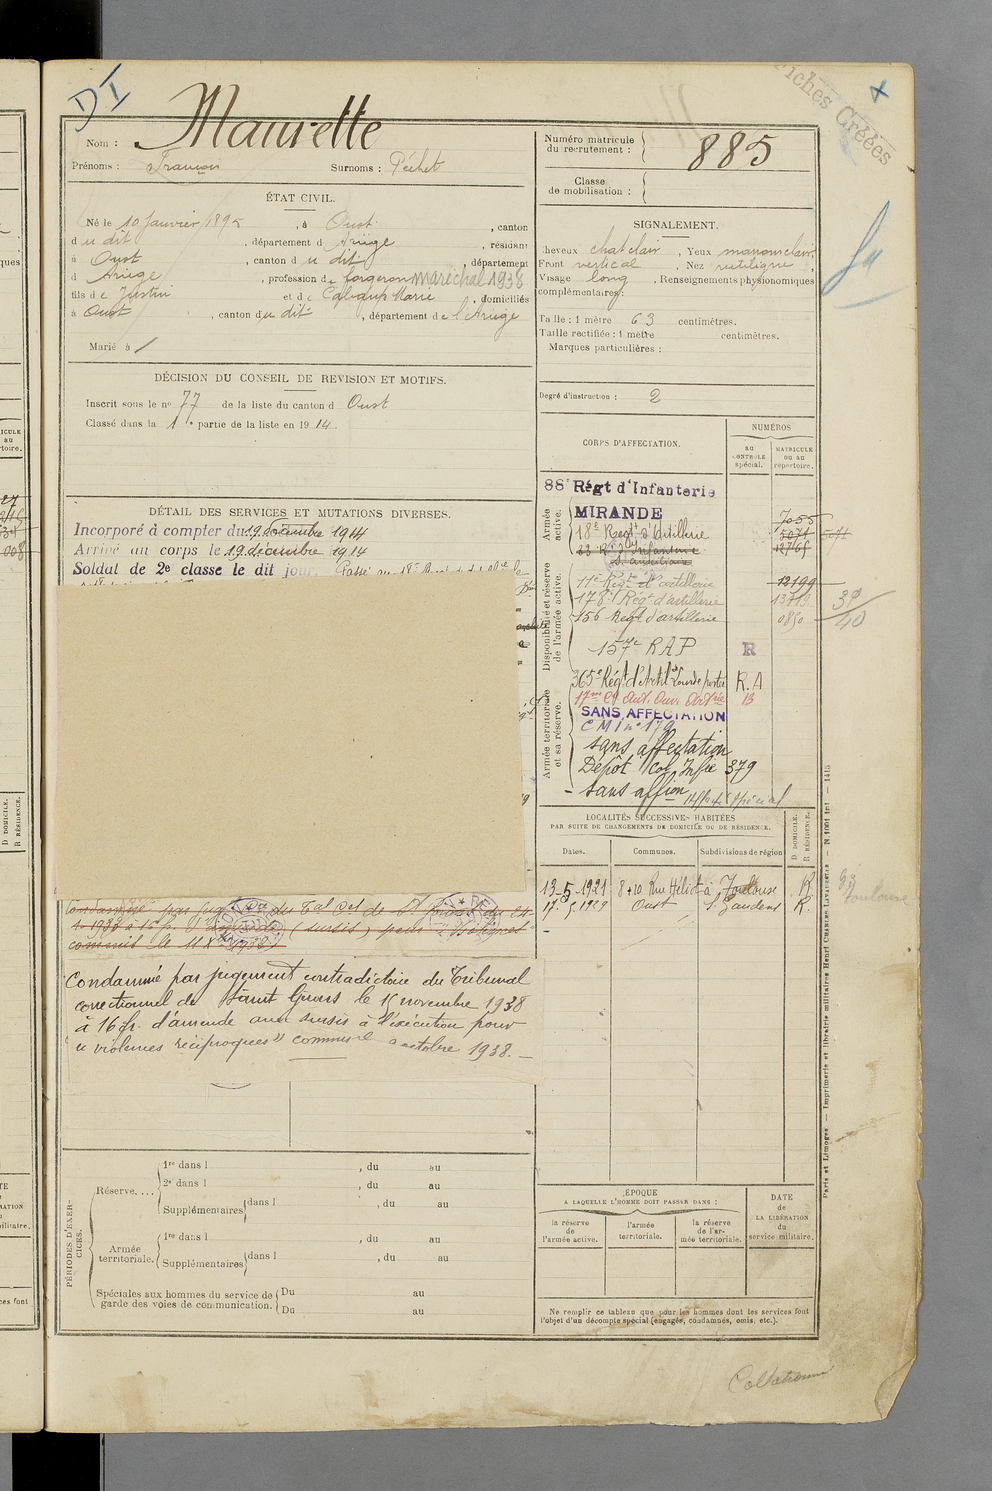 DI
Fiches Créées
Nom : Maurette
Prénoms : François Surnoms : Péchet
Numéro matricule du recrutement : 885
Classe de mobilisation :
ÉTAT CIVIL.
Né le 10 Janvier 1895, à Oust, canton
du dit, département d Ariège, résidant
à Oust, canton du dit, département
d Ariège, profession de forgeron maréchal 1938
fils de Justin et de Marie, domiciliés
à Oust, canton du dit, département de l'Ariège
Marié à
SIGNALEMENT.
Cheveux chat clair, Yeux marron clair,
Front vertical, Nez rectiligne,
Visage long, Renseignements physionomiques
complémentaires :
Taille : 1 mètre 63 centimètres.
Taille rectifiée : 1 mètre centimètres.
Marques particulières :
Degré d'instruction : 2
DÉCISION DU CONSEIL DE REVISION ET MOTIFS.
Inscrit sous le nº 77 de la liste du canton d Oust
Classé dans la 1e partie de la liste en 1914.
DÉTAIL DES SERVICES ET MUTATIONS DIVERSES.
Incorporé à compter du 19 décembre 1914
Arrivé au corps le 19 décembre 1914
Soldat de 2e classe le dit jour. Passé au 18e
Condamné par jugement contradictoire du Tribunal
correctionnel de Saint Girons le 15 novembre 1938
à 16 fr. d'amende avec sursis à l'exécution pour
"violences réciproques" commis le octobre 1938.
CORPS D'AFFECTATION.
NUMÉROS
au contrôle spécial.
MATRICULE ou au répertoire.
Armée active.
88e Régt d'Infanterie
MIRANDE
7055
18e Régt d'Artillerie
5071
23 Rt d'Infanterie
12765
s. auxiliaire
Disponibilité et réserve de l'armée active.
11e Régt d'artillerie 12199
178e Régt d'artillerie 13713
156 Régt d'artillerie 0850
39/40
157e RAP R
365e Régt d'Artie Lourde portée R.A
Armée territoriale et sa réserve.
SANS AFFECTATION
CMI nº 179
sans affectation
Dépôt Col Infie 379
sans affion
LOCALITÉS SUCCESSIVES HABITÉES
PAR SUITE DE CHANGEMENTS DE DOMICILE OU DE RÉSIDENCE.
Dates. Communes. Subdivisions de région
D DOMICILE.
R RÉSIDENCE.
13-5-1921 8+10 Rue Héliot à Toulouse R
17-5-1929 Oust St Gaudens R.
Toulouse
PÉRIODES D'EXERCICES.
Réserve....
1re dans l , du au
2e dans l , du au
Supplémentaires dans l , du au
Armée territoriale.
1re dans l , du au
Supplémentaires dans l , du au
Spéciales aux hommes du service de garde des voies de communication.
Du au
Du au
ÉPOQUE
A LAQUELLE L'HOMME DOIT PASSER DANS :
la réserve de l'armée active.
l'armée territoriale.
la réserve de l'armée territoriale.
DATE de LA LIBÉRATION du service militaire.
Ne remplir ce tableau que pour les hommes dont les services font
l'objet d'un décompte spécial (engagés, condamnés, omis, etc.).
Paris et Limoges — Imprimerie et librairie militaires Henri CHARLES-LAVAUZELLE
Collationné